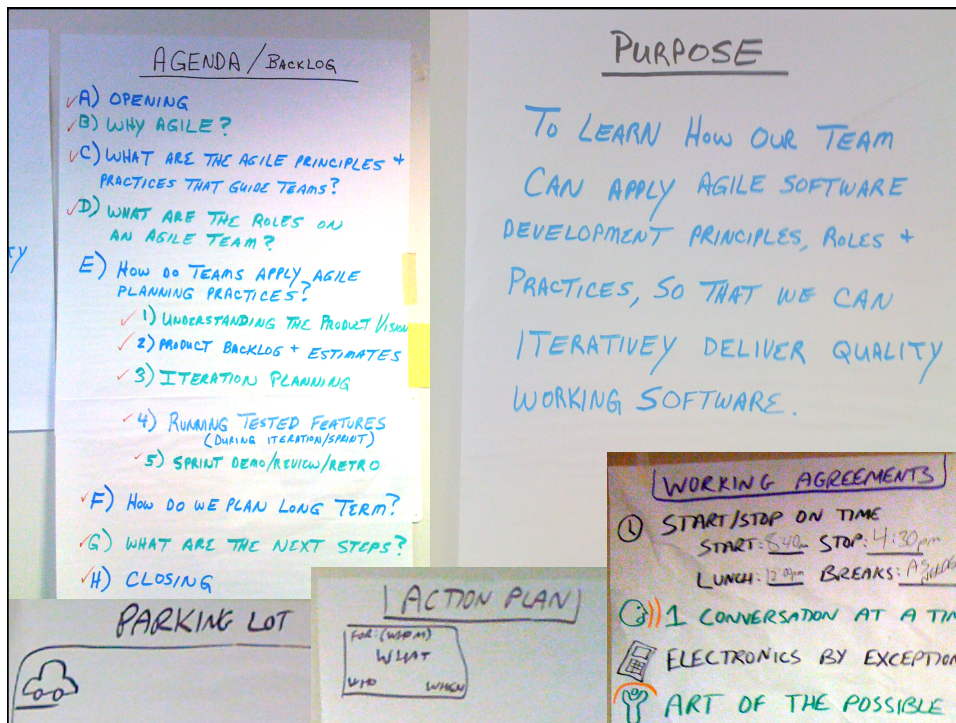 AGENDA/BACKLOG
A) OPENING
B) WHY AGILE?
C) WHAT ARE THE AGILE PRINCIPLES +
PRACTICES THAT GUIDE TEAMS?
D) WHAT ARE THE ROLES ON
AN AGILE TEAM?
E) HOW DO TEAMS APPLY AGILE
PLANNING PRACTICES?
1) UNDERSTANDING THE PRODUCT VISION
2) PRODUCT BACKLOG + ESTIMATES
3) ITERATION PLANNING
4) RUNNING TESTED FEATURES
(DURING ITERATION/SPRINT)
5) SPRINT DEMO/REVIEW/RETRO
F) HOW DO WE PLAN LONG TERM?
G) WHAT ARE THE NEXT STEPS?
H) CLOSING
PURPOSE
TO LEARN HOW OUR TEAM
CAN APPLY AGILE SOFTWARE
DEVELOPMENT PRINCIPLES, ROLES +
PRACTICES, SO THAT WE CAN
ITERATIVEY DELIVER QUALITY
WORKING SOFTWARE.
PARKING LOT
ACTION PLAN
FOR: (WHOM)
WHAT
WHO WHEN
WORKING AGREEMENTS
START/STOP ON TIME
START: 8:40am STOP: 4:30pm
LUNCH: 12:00pm BREAKS: AS
1 CONVERSATION AT A TIM
ELECTRONICS BY EXCEPTION
ART OF THE POSSIBLE